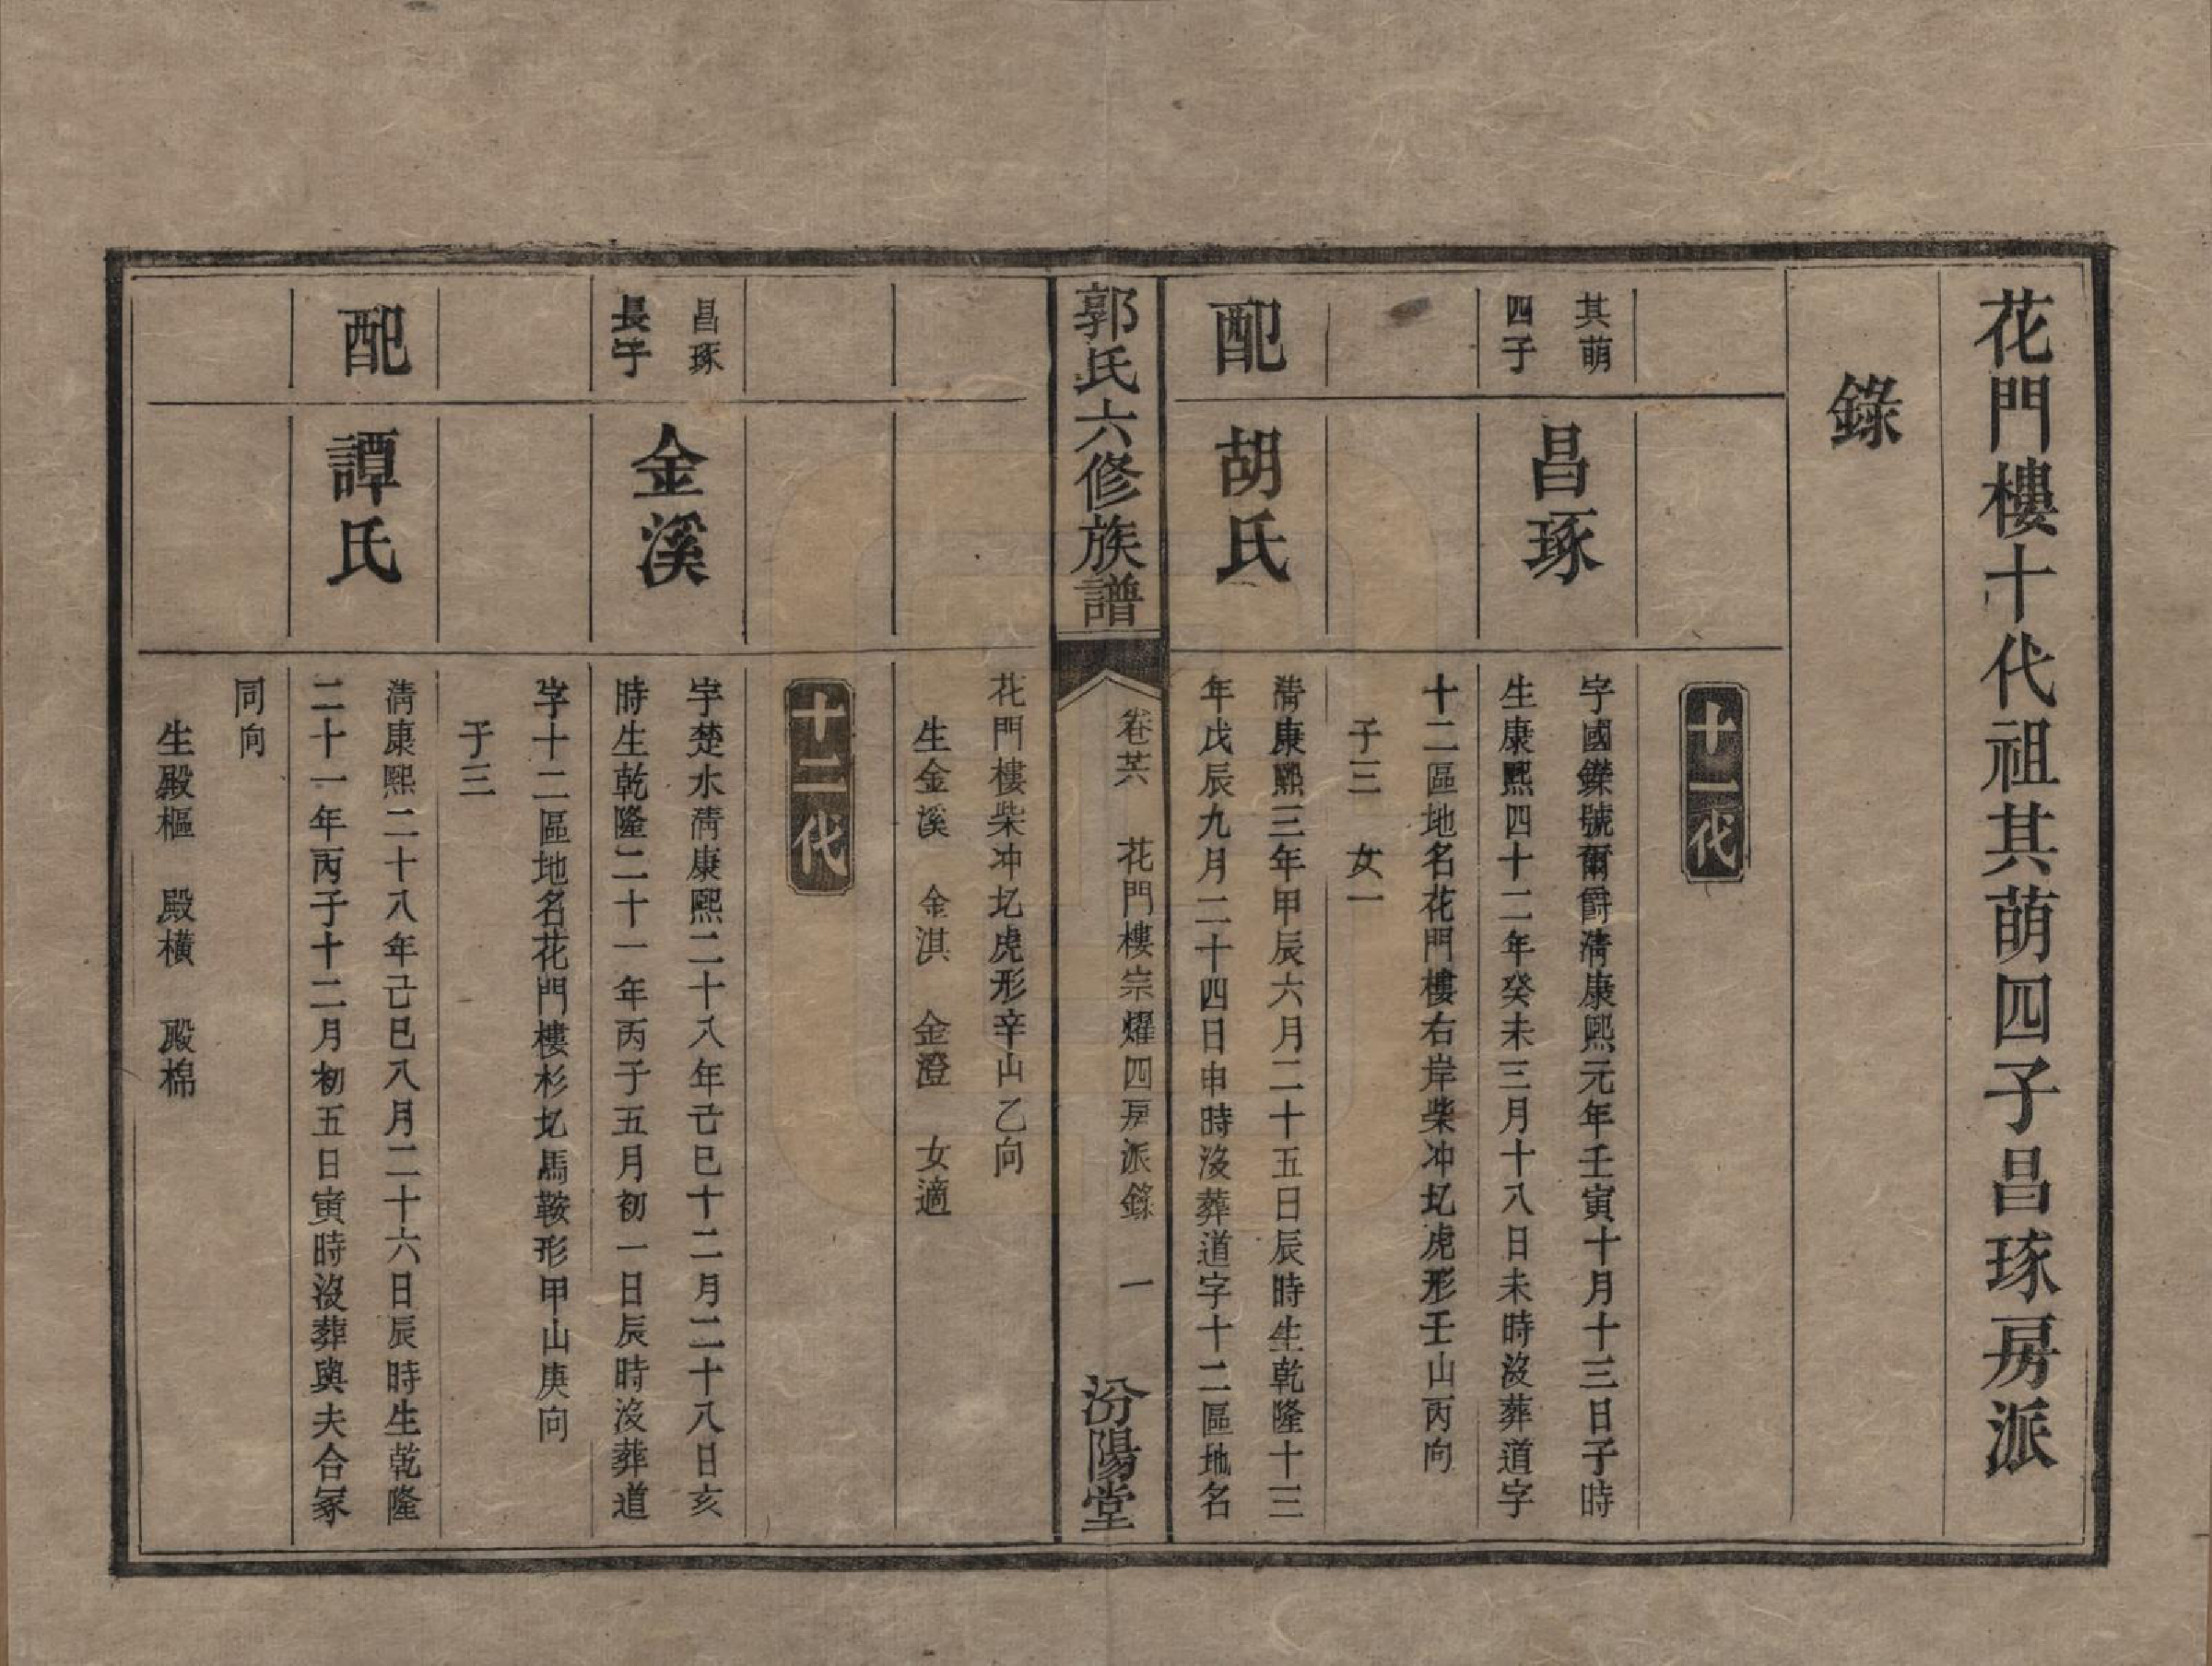 花門樓十代祖其萌四子昌琢房派
錄
十一代
其萌
四子
昌琢
字國鑠號爾爵清康熙元年壬寅十月十三日子時
生康熙四十二年癸未三月十八日未時沒葬道字
十二區地名花門樓右岸柴冲圠虎形壬山丙向
子三　女一
配
胡氏
清康熙三年甲辰六月二十五日辰時生乾隆十三
年戊辰九月二十四日申時沒葬道字十二區地名
郭氏六修族譜
卷廿六　花門樓宗燿四房派錄　一
汾陽堂
花門樓柴冲圠虎形辛山乙向
生金溪　金淇　金澄　女適
十二代
昌琢
長子
金溪
字楚水清康熙二十八年己巳十二月二十八日亥
時生乾隆二十一年丙子五月初一日辰時沒葬道
字十二區地名花門樓杉圠馬鞍形甲山庚向
子三
配
譚氏
清康熙二十八年己巳八月二十六日辰時生乾隆
二十一年丙子十二月初五日寅時沒葬與夫合冢
同向
生殿樞　殿橫　殿棉